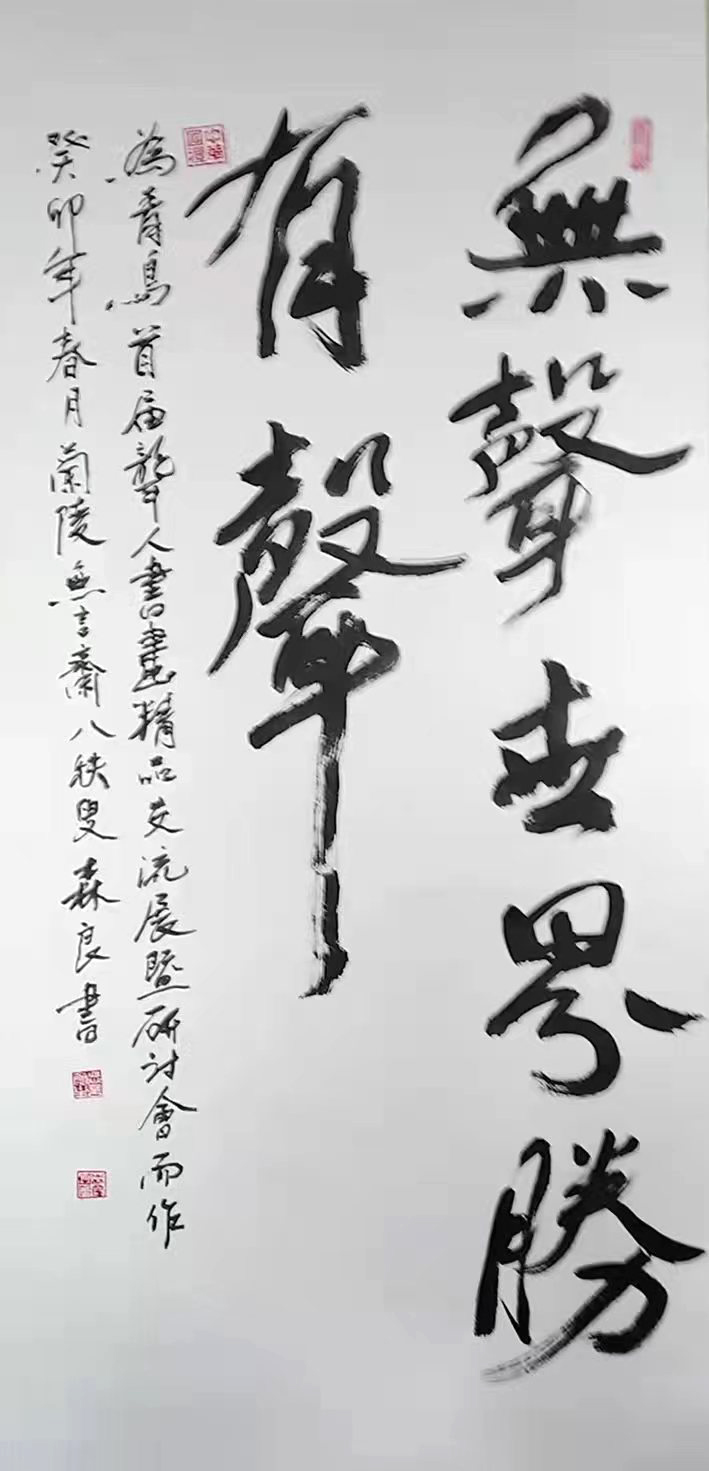 無聲世界勝
有聲
為青島首届聾人書畫精品交流展暨研討會而作
癸卯年春月蘭陵無言齋八秩叟森良書